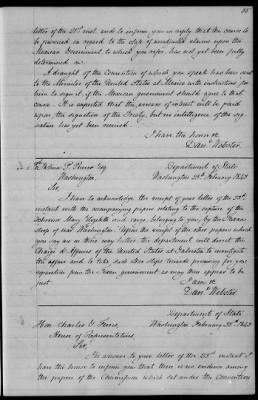 35
letter of the 21st inst. and to inform you in reply that the course to
be pursued in regard to the class of unadjusted claims upon the
Mexican Government to which you refer, has not yet been fully
determined on.
A draught of the Convention of which you speak has been sent
to the Minister of the United States at Mexico with instructions for
him to sign it, if the Mexican government should agree to that
course. It is expected that the answer of will be
upon the signature of the Treaty, but no intelligence of the sig-
nature has yet been received.
I have the honor &c
Danl. Webster.
Esq
Washington,
Department of State
Washington February 1843
Sir,
I have to acknowledge the receipt of your letter of the
instant with the accompanying papers relating to the capture of the
Schooner Mary Elizabeth and cargo, belonging to you, by the Texan
sloop of war Washington. Upon the receipt of the other papers which
you say are on their way hither, the department will direct the
Chargé d'Affaires of the United States at Galveston to investigate
the affair and to take such other steps towards procuring for you
reparation from the Texan government as may then appear to be
just.
I am &c
Danl. Webster.
Department of State
Washington February 1843
Hon. Charles G. Ferris,
House of Representatives,
Sir,
In answer to your letter of the 23d instant I
have the honor to inform you that there is no evidence among
the papers of the Commission which sat under the Convention